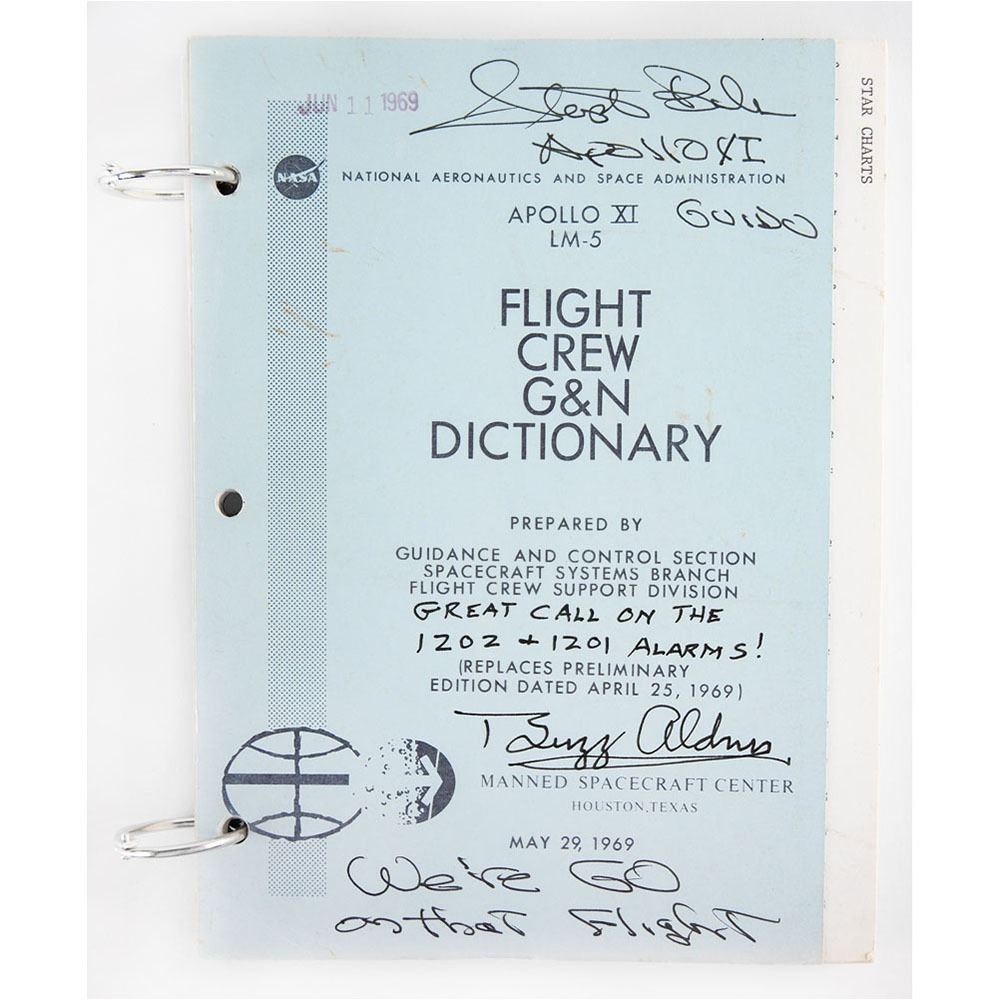 JUN 11 1969
Steph Bale
APOLLO XI
NASA
NATIONAL AERONAUTICS AND SPACE ADMINISTRATION
APOLLO XI GUIDO
LM-5
FLIGHT
CREW
G&N
DICTIONARY
PREPARED BY
GUIDANCE AND CONTROL SECTION
SPACECRAFT SYSTEMS BRANCH
FLIGHT CREW SUPPORT DIVISION
GREAT CALL ON THE
1202 + 1201 ALARMS!
(REPLACES PRELIMINARY
EDITION DATED APRIL 25, 1969)
Buzz Aldrin
MANNED SPACECRAFT CENTER
HOUSTON, TEXAS
MAY 29, 1969
We're GO
on that Flight
STAR CHARTS